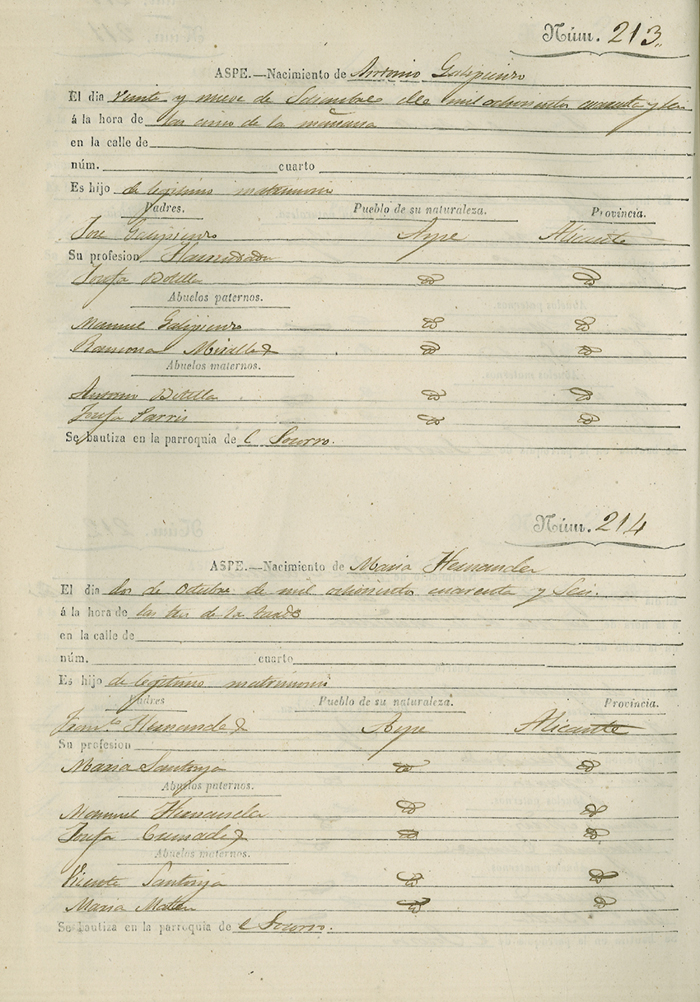 Núm. 213.
ASPE.—Nacimiento de Antonio Galipienzo
El dia veinte y nueve de Setiembre de mil ochocientos cuarenta y seis
á la hora de las cinco de la mañana
en la calle de
núm. cuarto
Es hijo de legitimo matrimonio
Padres. Pueblo de su naturaleza. Provincia.
Jose Galipienzo Aspe Alicante
Su profesion
Josefa Botella id id
Abuelos paternos.
Manuel Galipienzo id id
Ramona Miralles id id
Abuelos maternos.
Antonio Botella id id
Josefa id id
Se bautiza en la parroquia de el Socorro.
Núm. 214
ASPE.—Nacimiento de Maria Hernandez
El dia dos de Octubre de mil ochocientos cuarenta y seis.
á la hora de las tres de la tarde
en la calle de
núm. cuarto
Es hijo de legitimo matrimonio
Padres Pueblo de su naturaleza. Provincia.
Franco. Hernandez Aspe Alicante
Su profesion
Maria Santonja id id
Abuelos paternos.
Manuel Hernandez id id
Josefa id id
Abuelos maternos.
Vicente Santonja id id
Maria id id
Se bautiza en la parroquia de el Socorro.